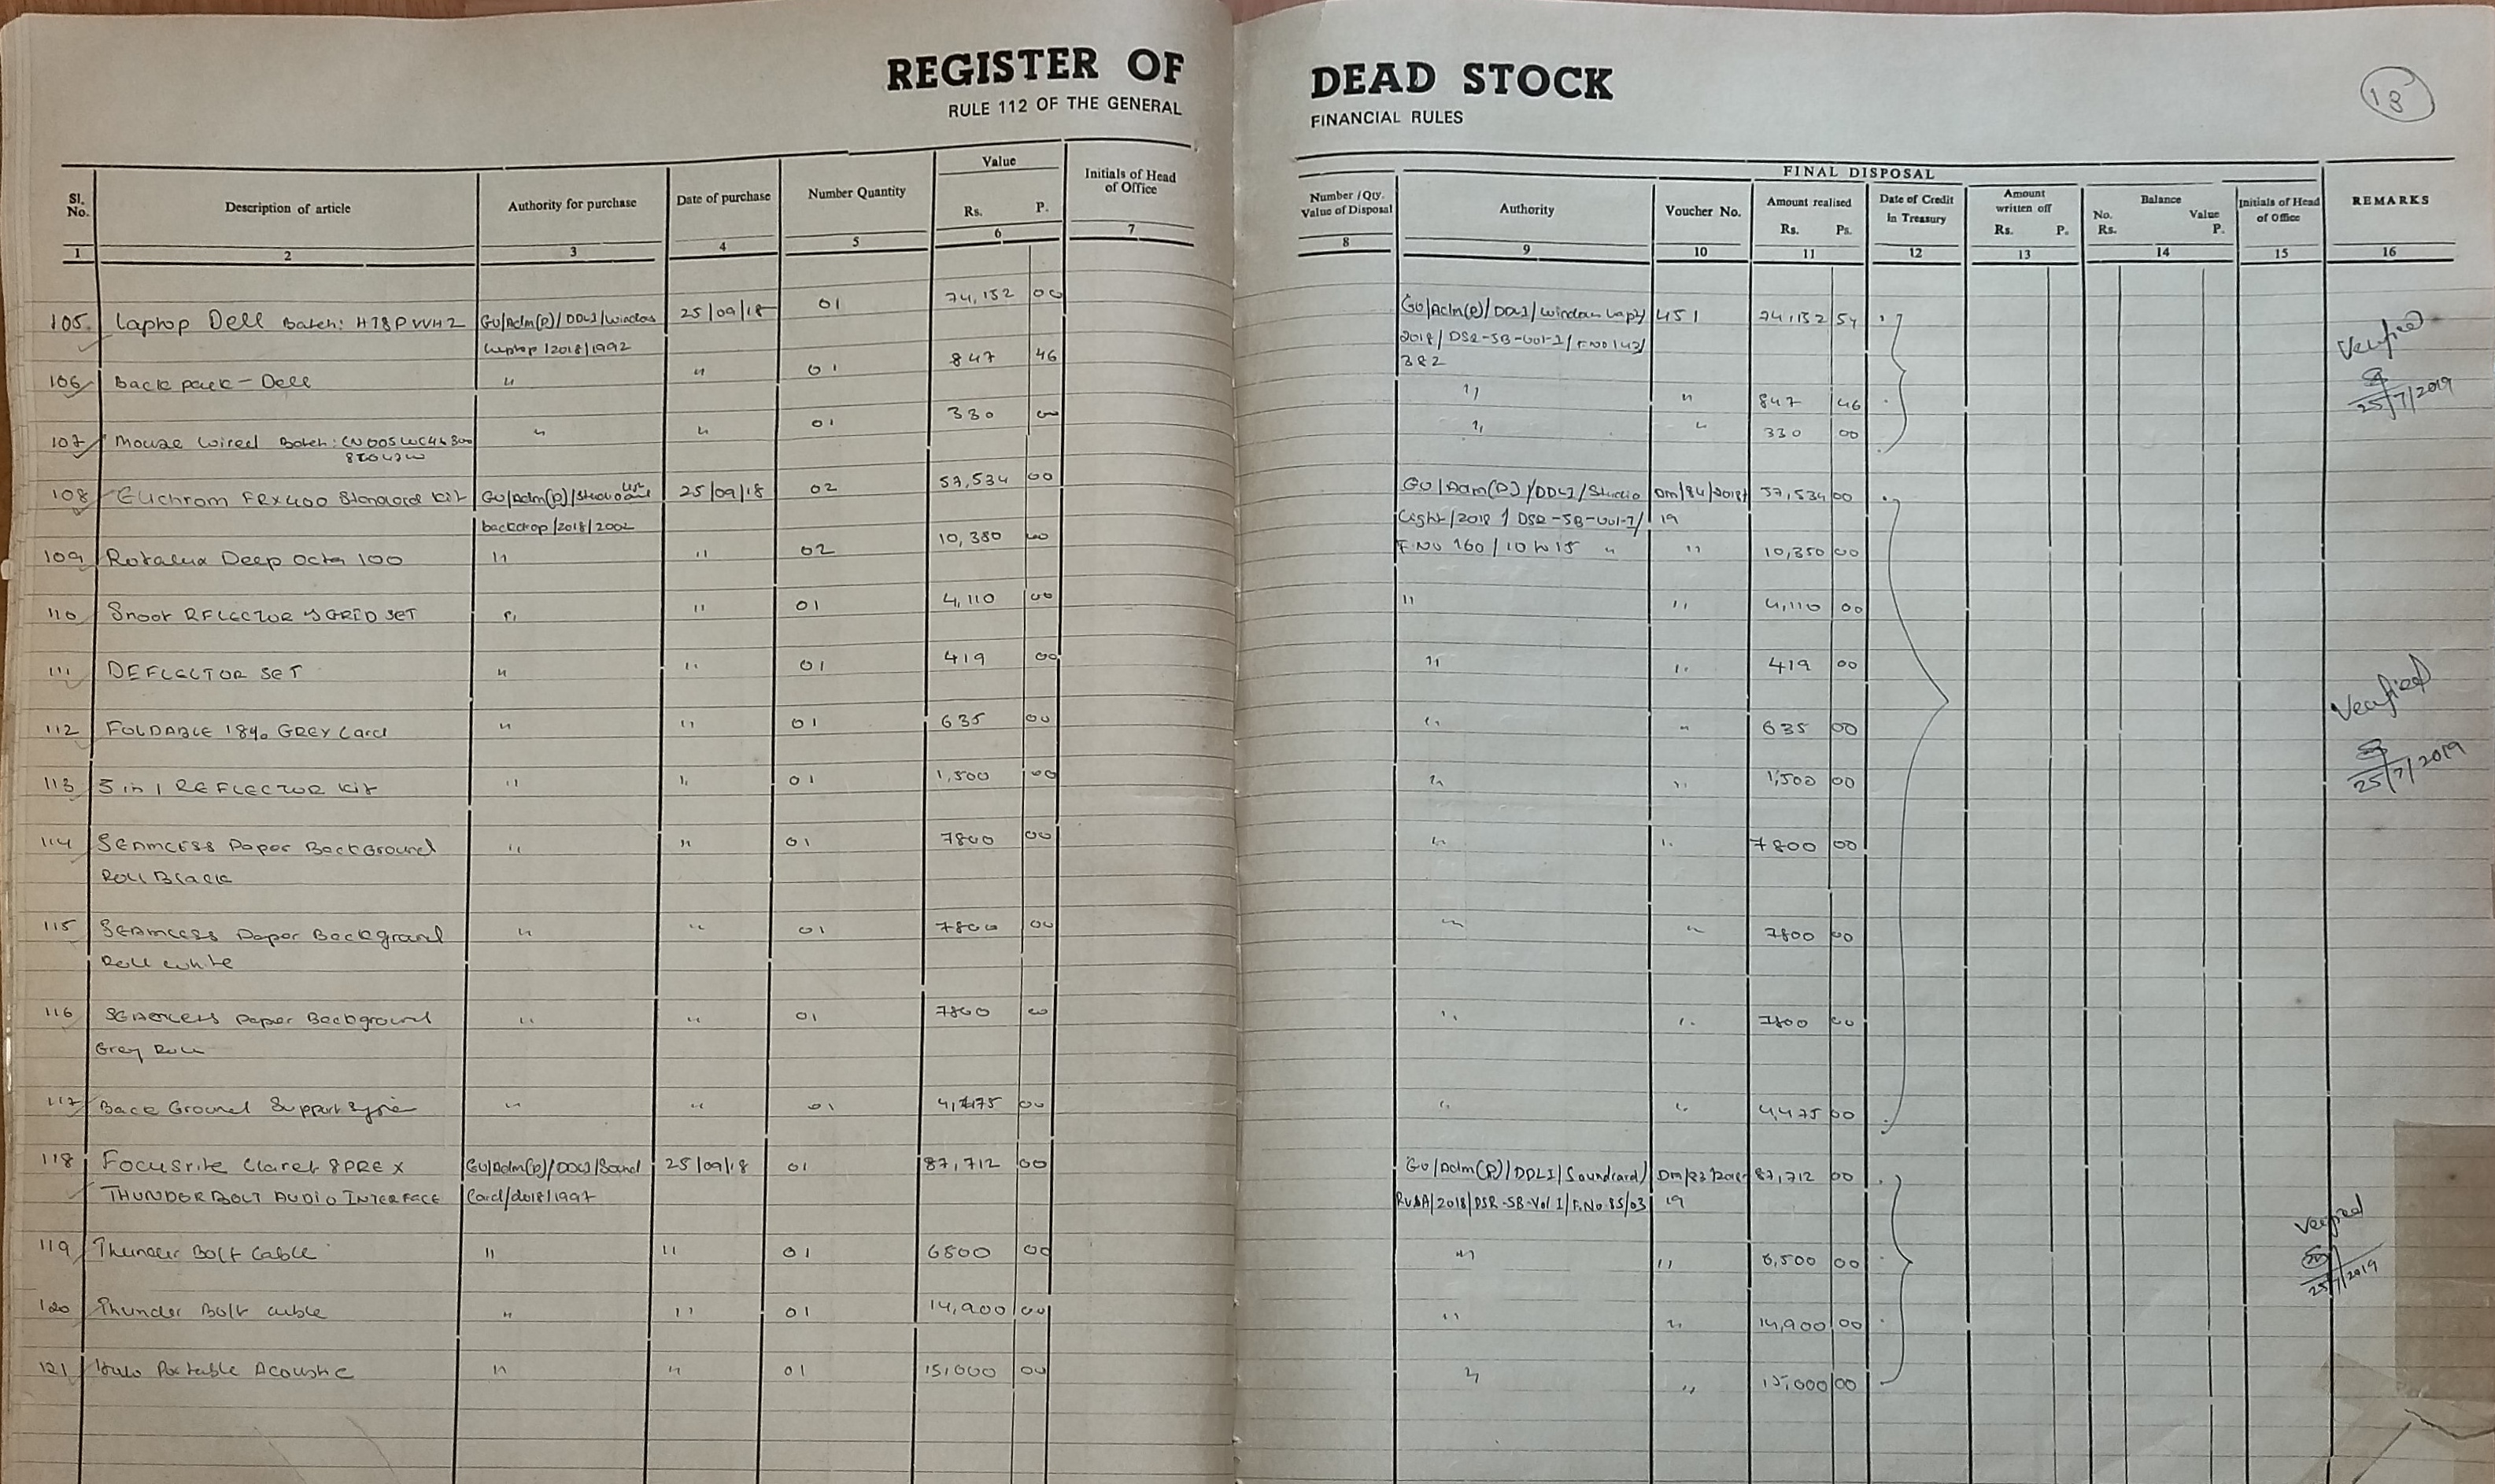 REGISTER OF DEAD STOCK
RULE 112 OF THE GENERAL FINANCIAL RULES
18
Sl. No. Description of article Authority for purchase Date of purchase Number Quantity Value Rs. P. Initials of Head of Office
Number/Qty. Value of Disposal Authority Voucher No. FINAL DISPOSAL Amount realised Rs. Ps. Date of Credit in Treasury Amount written off Rs. P. Balance No. Rs. Value P. Initials of Head of Office REMARKS
1 2 3 4 5 6 7 8 9 10 11 12 13 14 15 16
105. Laptop Dell Batch: H78PVVH2 GU/Adm(P)/DDLI/Windows 25/09/18 01 74,152 00 GU/Adm(P)/DDLI/Windows Lapt/ 451 74,152 54
Laptop/2018/1992 2018/DSR-SB-Vol-I/F.No 143/
382
106 Back pack - Dell " " 01 847 46 " " 847 46
107 Mouse wired Batch: " " 01 330 00 " " 330 00
Verified
25/7/2019
108 Elichrom FRX400 Standard Kit GU/Adm(P)/Studio Light and 25/09/18 02 57,534 00 GU/Adm(P)/DDLI/Studio Dm/84/2018 57,534 00
backdrop/2018/2002 Light/2018/DSR-SB-Vol-I/ 19
109 Rotalux Deep Octa 100 " " 02 10,380 00 F.No 160/10 to 15 " " 10,350 00
110 Snoot REFLECTOR & GRID SET " " 01 4,110 00 " " 4,110 00
111 DEFLECTOR SET " " 01 419 00 " " 419 00
112 FOLDABLE 18% GREY Card " " 01 635 00 " " 635 00
113 5 in 1 REFLECTOR Kit " " 01 1,500 00 " " 1,500 00
Verified
25/7/2019
114 SEAMLESS Paper BackGround " " 01 7800 00 " " 7800 00
Roll Black
115 SEAMLESS Paper Background " " 01 7800 00 " " 7800 00
Roll White
116 SEAMLESS Paper Background " " 01 7800 00 " " 7800 00
Grey Roll
117 Back Ground Support System " " 01 4,475 00 " " 4,475 00
118 Focusrite Claret 8PRE X GU/Adm(P)/DDLI/Sound 25/09/18 01 87,712 00 GU/Adm(P)/DDLI/Soundcard/ Dm/83/2018- 87,712 00
THUNDERBOLT AUDIO INTERFACE Card/2018/1997 RUSA/2018/DSR-SB-Vol I/F.No 85/03 19
119 Thunder Bolt Cable " " 01 6800 00 " " 6,500 00
120 Thunder Bolt cable " " 01 14,900 00 " " 14,900 00
121 Halo Portable Acoustic " " 01 15,000 00 " " 15,000 00
Verified
25/7/2019